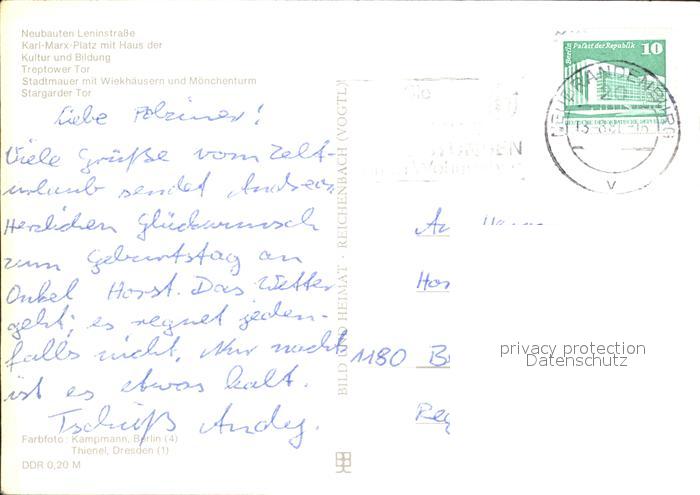 Neubauten Leninstraße
Karl-Marx-Platz mit Haus der
Kultur und Bildung
Treptower Tor
Stadtmauer mit Wiekhäusern und Mönchenturm
Stargarder Tor
Liebe
Viele Grüße vom Zelt-
urlaub sendet Andreas.
Herzlichen Glückwunsch
zum Geburtstag an
Onkel Horst. Das Wetter
geht, es regnet jeden-
falls nicht. Nur nachts
ist es etwas kalt.
Tschüß Andy.
Farbfoto: Kampmann, Berlin (4)
Thienel, Dresden (1)
DDR 0,20 M
BILD UND HEIMAT · REICHENBACH (VOGTL)
Berlin Palast der Republik 10
NEUBRANDENBURG
20
1180
privacy protection
Datenschutz